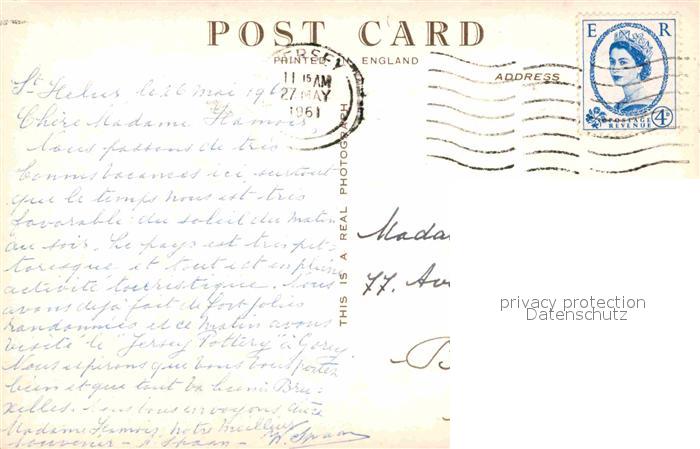 POST CARD
PRINTED ENGLAND
ADDRESS
E R
POSTAGE
REVENUE
4D
JERSEY
11 15 AM
27 MAY
1961
THIS IS A REAL PHOTOGRAPH
St Helier le 26 mai 1961
Chère Madame Hamois,
Nous passons de très
bonnes vacances ici, surtout
que le temps nous est très
favorable du soleil du matin
au soir. Le pays est très pit-
toresque et tout est en pleine
activité touristique. Nous
avons déjà fait de fort jolies
randonnées et ce matin avons
visité le "Jersey Pottery" à Gorey
Nous espérons que vous vous portez
bien et que tout va bien à Bru-
xelles. Nous vous envoyons, chère
Madame Hamois, notre meilleur
souvenir - A. Spaan - W. Spaan
Mada
77. Av
B
privacy protection
Datenschutz